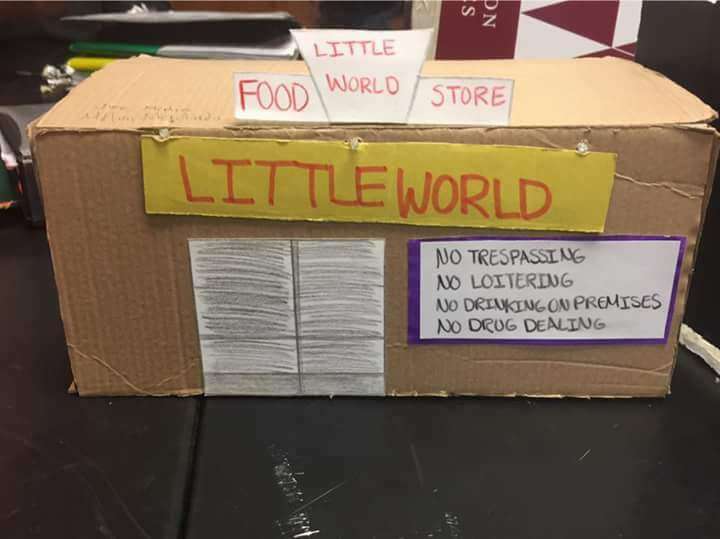 ON
S
LITTLE
FOOD WORLD STORE
LITTLE WORLD
NO TRESPASSING
NO LOITERING
NO DRINKING ON PREMISES
NO DRUG DEALING